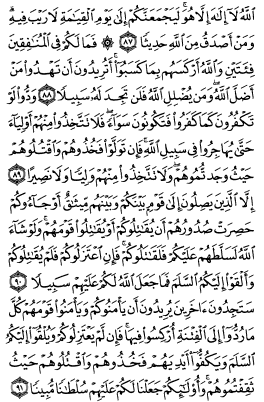 ٱللَّهُ لَآ إِلَٰهَ إِلَّا هُوَ ۚ لَيَجْمَعَنَّكُمْ إِلَىٰ يَوْمِ ٱلْقِيَٰمَةِ لَا رَيْبَ فِيهِ ۗ
وَمَنْ أَصْدَقُ مِنَ ٱللَّهِ حَدِيثًا ٨٧ ۞ فَمَا لَكُمْ فِى ٱلْمُنَٰفِقِينَ
فِئَتَيْنِ وَٱللَّهُ أَرْكَسَهُم بِمَا كَسَبُوٓا۟ ۚ أَتُرِيدُونَ أَن تَهْدُوا۟ مَنْ
أَضَلَّ ٱللَّهُ ۖ وَمَن يُضْلِلِ ٱللَّهُ فَلَن تَجِدَ لَهُۥ سَبِيلًا ٨٨ وَدُّوا۟ لَوْ
تَكْفُرُونَ كَمَا كَفَرُوا۟ فَتَكُونُونَ سَوَآءً ۖ فَلَا تَتَّخِذُوا۟ مِنْهُمْ أَوْلِيَآءَ
حَتَّىٰ يُهَاجِرُوا۟ فِى سَبِيلِ ٱللَّهِ ۚ فَإِن تَوَلَّوْا۟ فَخُذُوهُمْ وَٱقْتُلُوهُمْ
حَيْثُ وَجَدتُّمُوهُمْ ۖ وَلَا تَتَّخِذُوا۟ مِنْهُمْ وَلِيًّا وَلَا نَصِيرًا ٨٩
إِلَّا ٱلَّذِينَ يَصِلُونَ إِلَىٰ قَوْمٍۭ بَيْنَكُمْ وَبَيْنَهُم مِّيثَٰقٌ أَوْ جَآءُوكُمْ
حَصِرَتْ صُدُورُهُمْ أَن يُقَٰتِلُوكُمْ أَوْ يُقَٰتِلُوا۟ قَوْمَهُمْ ۚ وَلَوْ شَآءَ
ٱللَّهُ لَسَلَّطَهُمْ عَلَيْكُمْ فَلَقَٰتَلُوكُمْ ۚ فَإِنِ ٱعْتَزَلُوكُمْ فَلَمْ يُقَٰتِلُوكُمْ
وَأَلْقَوْا۟ إِلَيْكُمُ ٱلسَّلَمَ فَمَا جَعَلَ ٱللَّهُ لَكُمْ عَلَيْهِمْ سَبِيلًا ٩٠
سَتَجِدُونَ ءَاخَرِينَ يُرِيدُونَ أَن يَأْمَنُوكُمْ وَيَأْمَنُوا۟ قَوْمَهُمْ كُلَّ
مَا رُدُّوٓا۟ إِلَى ٱلْفِتْنَةِ أُرْكِسُوا۟ فِيهَا ۚ فَإِن لَّمْ يَعْتَزِلُوكُمْ وَيُلْقُوٓا۟ إِلَيْكُمُ
ٱلسَّلَمَ وَيَكُفُّوٓا۟ أَيْدِيَهُمْ فَخُذُوهُمْ وَٱقْتُلُوهُمْ حَيْثُ
ثَقِفْتُمُوهُمْ ۚ وَأُو۟لَٰٓئِكُمْ جَعَلْنَا لَكُمْ عَلَيْهِمْ سُلْطَٰنًا مُّبِينًا ٩١